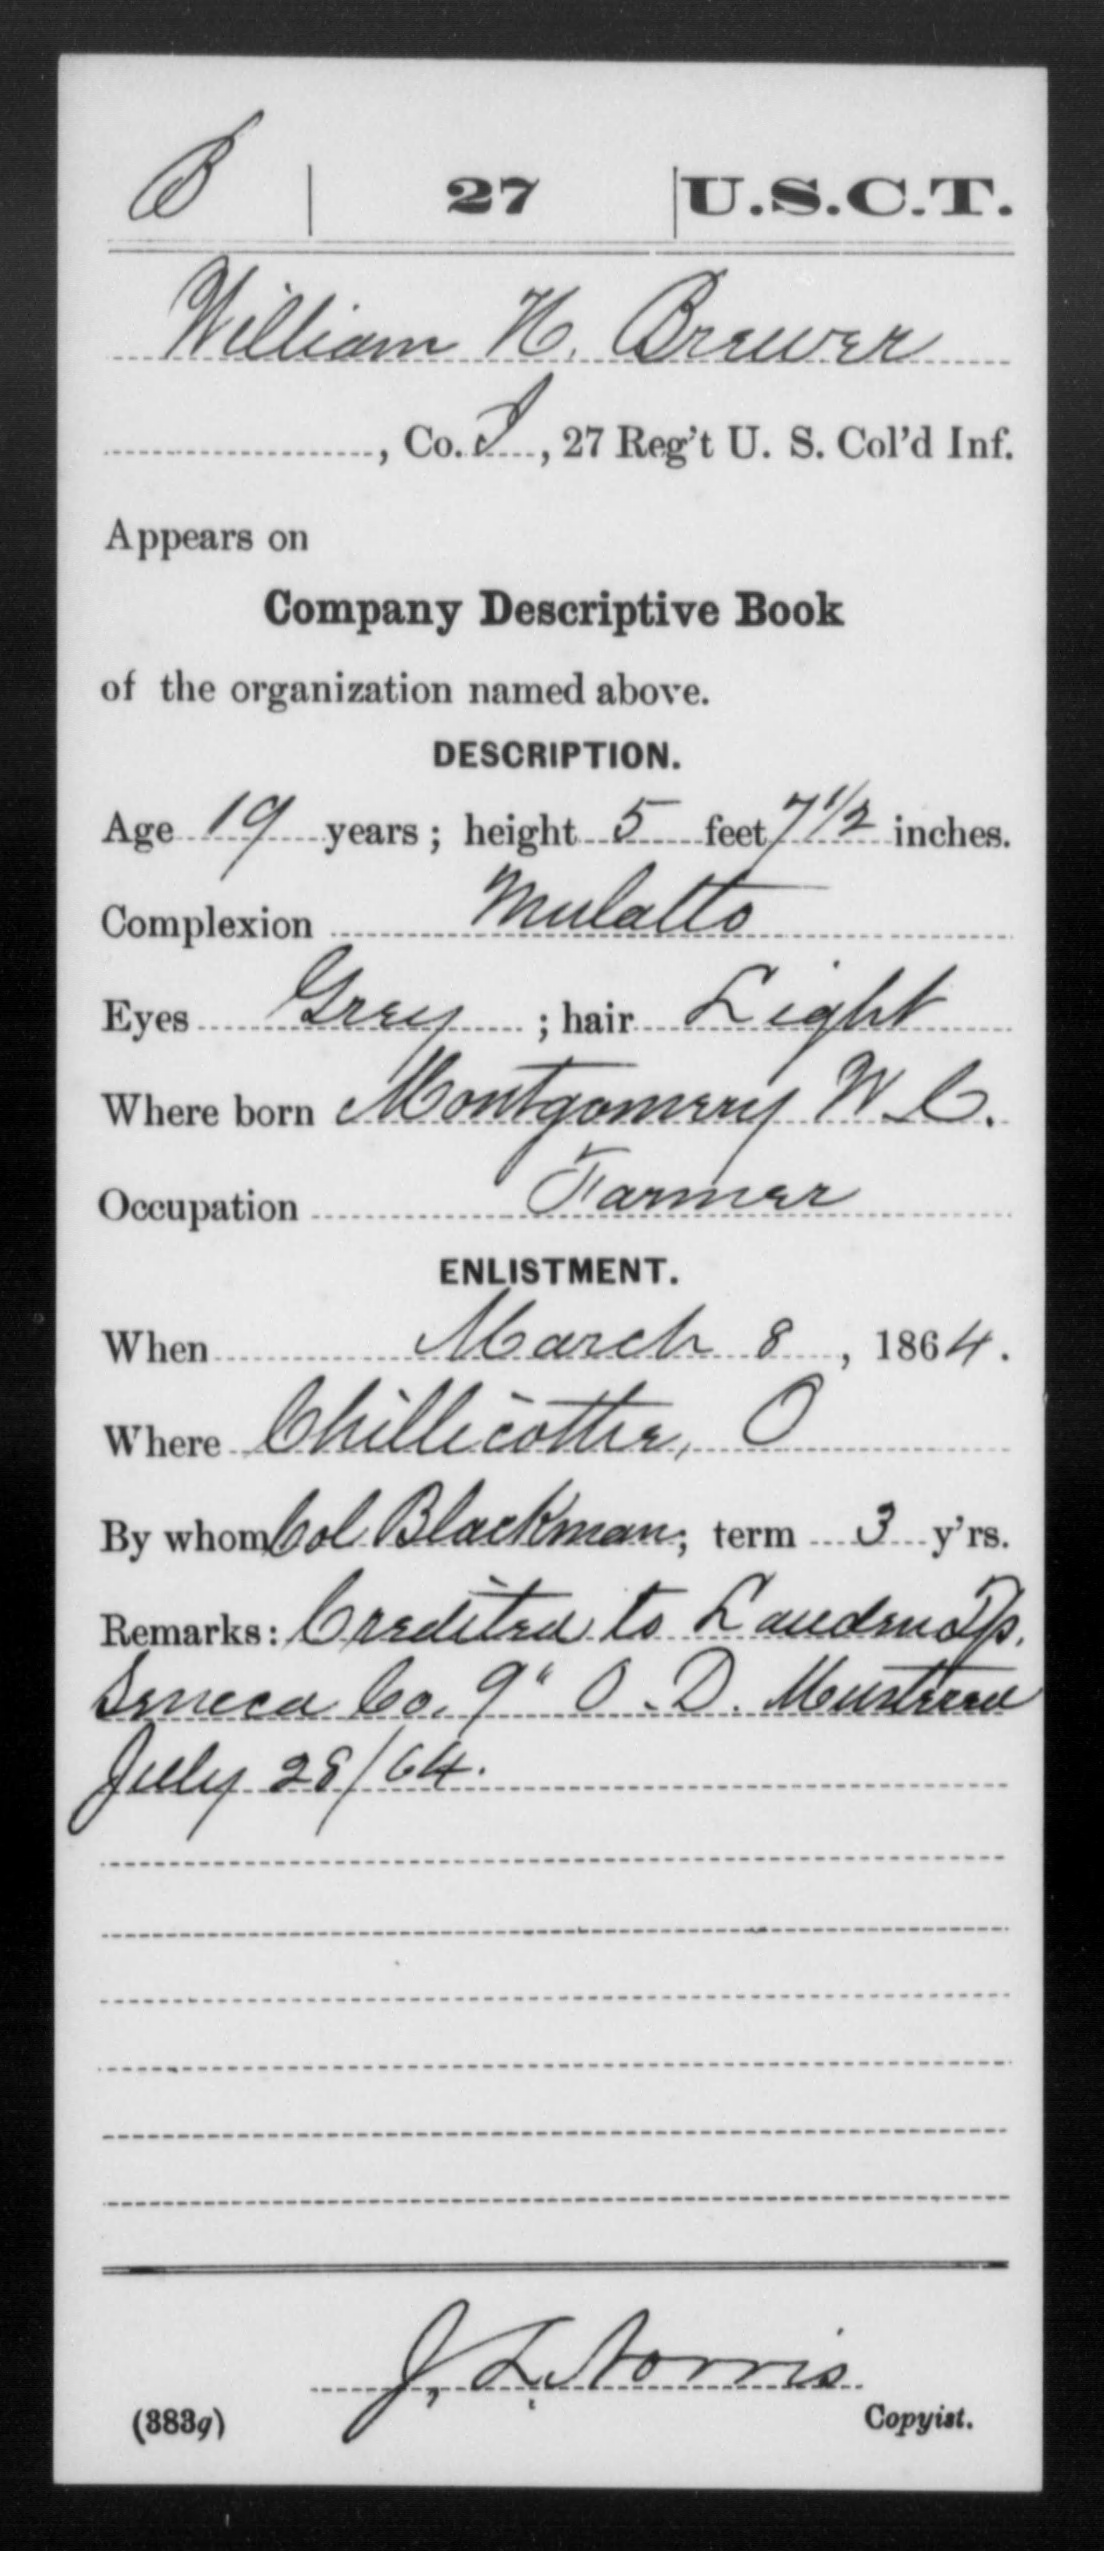 B | 27 | U.S.C.T.
William H. Brewer
, Co. I, 27 Reg't U. S. Col'd Inf.
Appears on
Company Descriptive Book
of the organization named above.
DESCRIPTION.
Age 19 years; height 5 feet 7 1/2 inches.
Complexion Mulatto
Eyes Grey; hair Light
Where born Montgomery N.C.
Occupation Farmer
ENLISTMENT.
When March 8, 1864.
Where Chillicothe, O
By whom Col Blackman; term 3 y'rs.
Remarks: Credited to Louden Tp.
Seneca Co. 9" O. D. Mustered
July 28/64.
J. L. Norris
(383g) Copyist.